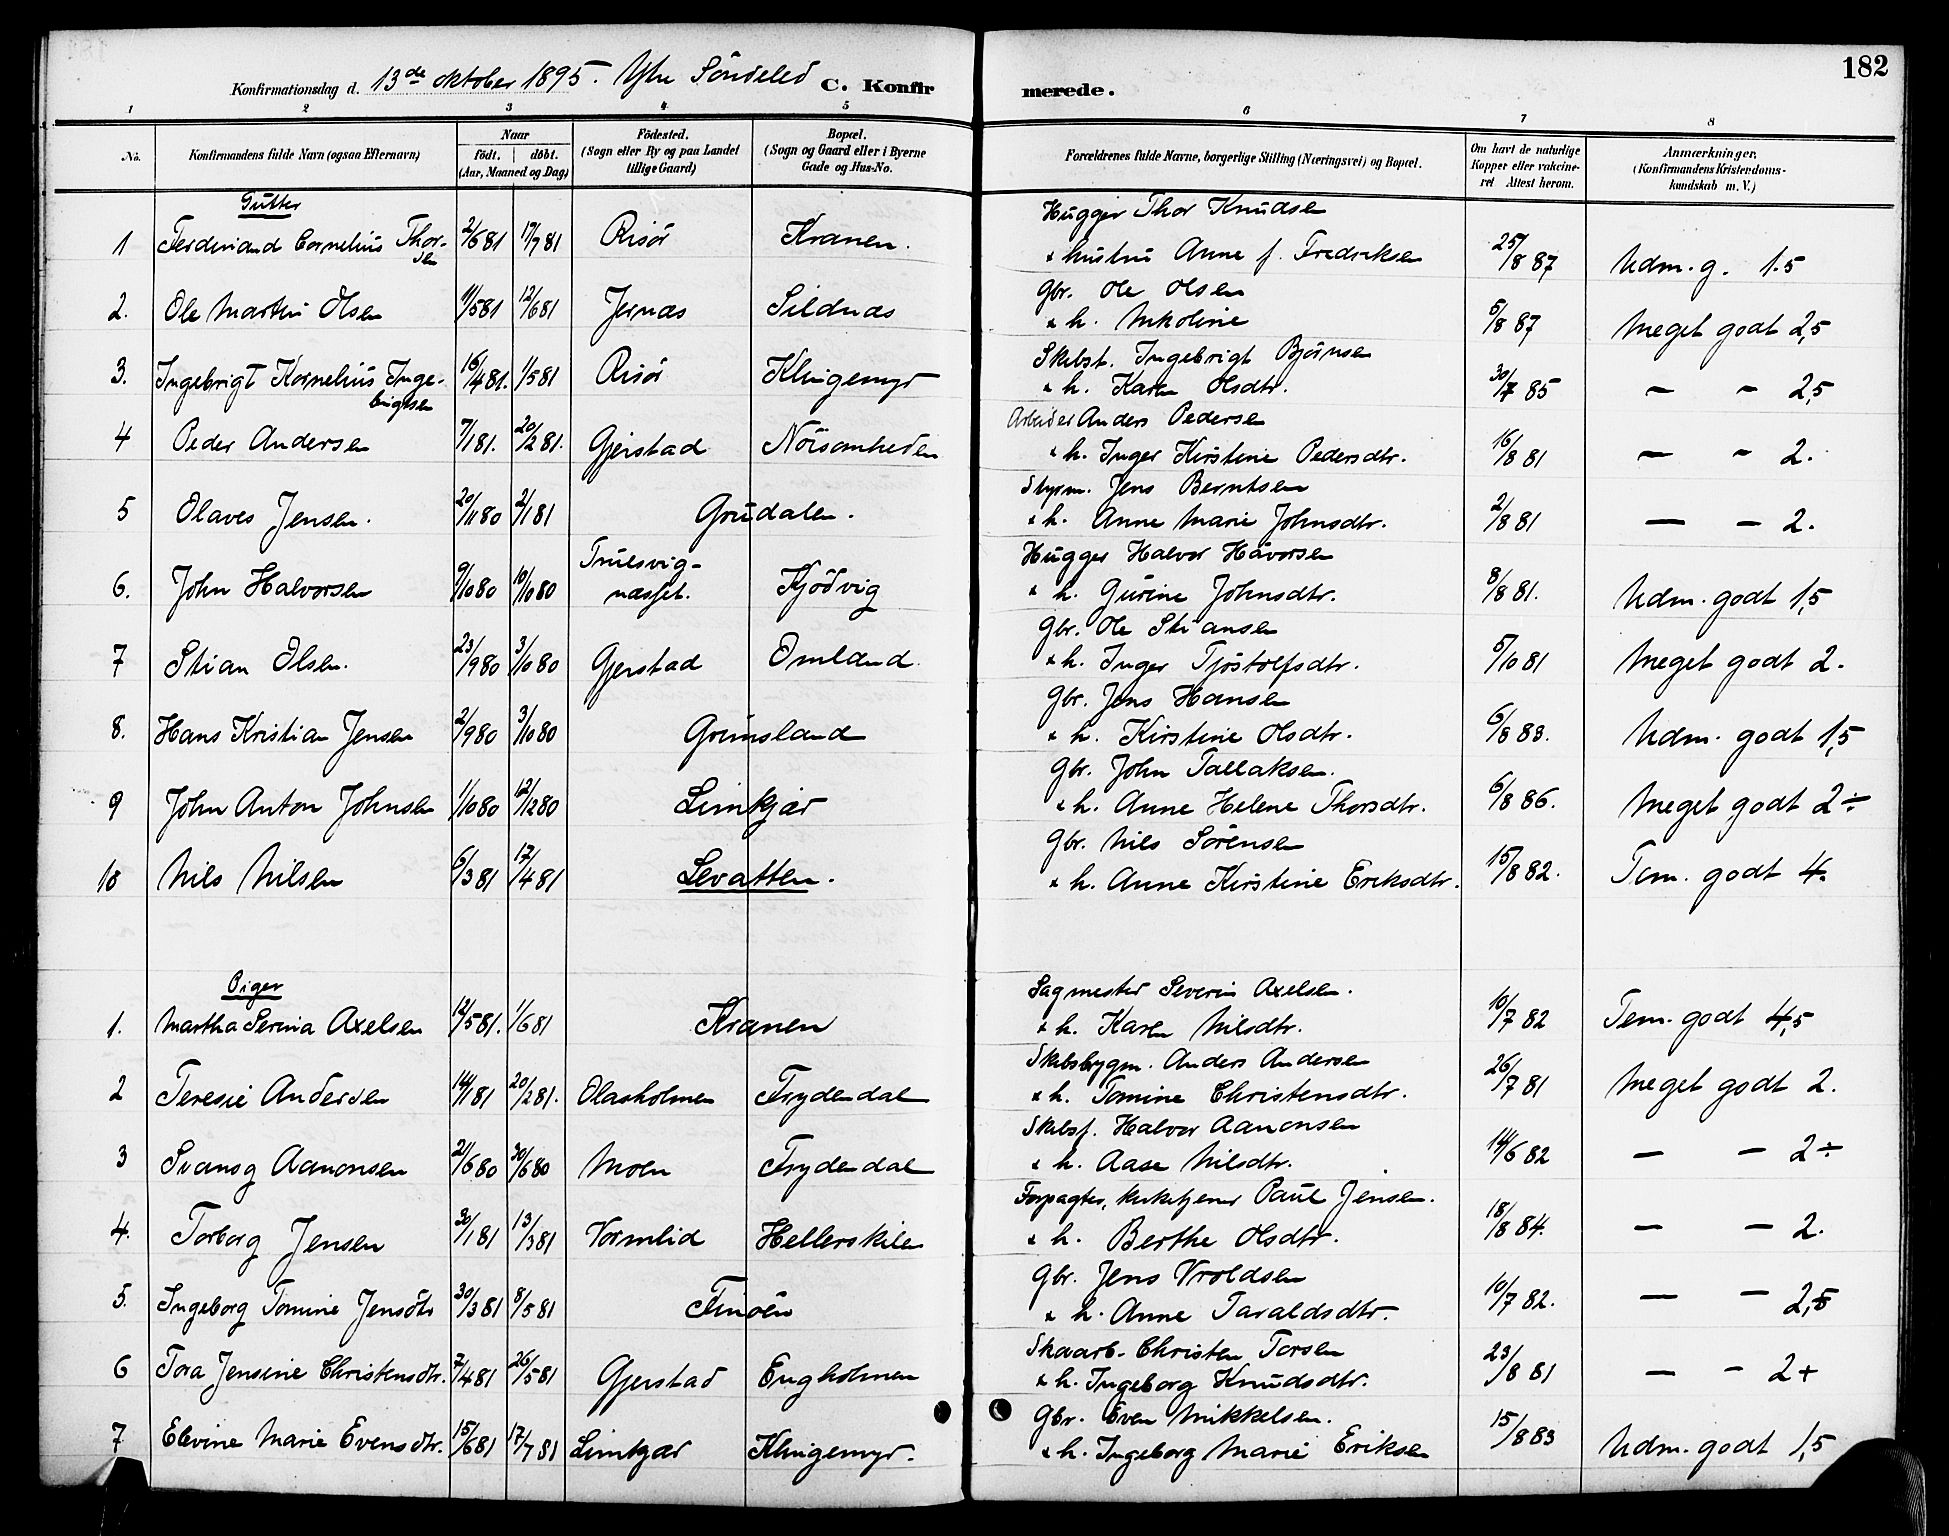 182
Konfirmationsdag d. 13de oktober 1895. Ytre Söndeled C. Konfirmerede.
1 2 3 4 5 6 7 8
No. Konfirmandens fulde Navn (ogsaa Efternavn) Naar födt. döbt. (Aar, Maaned og Dag) Födested. (Sogn eller By og paa Landet tillige Gaard) Bopæl. (Sogn og Gaard eller i Byerne Gade og Hus-No. Forældrenes fulde Navne, borgerlige Stilling (Næringsvei) og Bopæl. Om havt de naturlige Kopper eller vakcineret Attest herom. Anmærkninger. (Konfirmandens Kristendomskundskab m. V.)
Gutter
1 Ferdinand Cornelius Thorsen 2/6 81 17/7 81 Risör Kranen. Hugger Thor Knudsen
& hustru Anne f. Fredriksen 25/8 87 Udm. g. 1.5
2. Ole Martin Olsen 11/5 81 12/6 81 Jernæs Sildnæs Gbr. Ole Olsen
& h. Nikoline 5/8 87 Meget godt 2,5
3. Ingebrigt Kornelius Ingebrigtsen 16/4 81. 1/5 81 Risör Klingemyr Skibst. Ingebrigt Björnsen
& h. Karen Olsdtr. 30/7 85 — - 2,5
4 Peder Andersen 7/1 81. 20/2 81. Gjerstad Nöisomheden Arbeider Anders Pedersen
& h. Inger Kirstine Pedersdtr. 16/8 81 — - 2.
5 Olaves Jensen. 20/11 80 2/1 81 Grudalen. Styrm. Jens Berntsen
& h. Anne Marie Johnsdtr. 2/8 81 — - 2.
6. John Halvorsen 9/10 80 10/10 80 Trulsvignæsset. Kjödvig Hugger Halvor Håvorsen
& h. Gurine Johnsdtr. 8/8 81. Udm. godt 1,5
7 Stian Olsen. 23/9 80 3/10 80 Gjerstad Omland. Gbr. Ole Stiansen
& h. Inger Tjöstolfsdtr. 5/10 81 Meget godt 2.
8. Hans Kristian Jensen 2/9 80 3/10 80 Grimsland Gbr. Jens Hansen
& h. Kirstine Olsdtr. 6/8 83. Udm. godt 1,5
9 John Anton Johnsen 1/10 80 12/12 80 Limkjær Gbr. John Tallaksen.
& h. Anne Helene Thorsdtr. 6/8 86. Meget godt 2÷
10 Nils Nilsen 6/3 81 17/4 81 Levatten. Gbr. Nils Sörensen
& h. Anne Kirstine Eriksdtr. 15/8 82. Tem. godt 4.
Piger
1. Martha Serina Axelsen 12/5 81. 1/6 81 Kranen Sagmester Severin Axelsen.
& h. Karen Nilsdtr. 10/7 82 Tem. godt 4,5
2 Teresie Andersen 14/1 81 20/2 81. Olasholmen Frydendal Skibsbygm. Anders Andersen
& h. Tomine Christensdtr. 26/7 81 Meget godt 2.
3 Svanög Aanonsen 21/6 80 30/6 80 Moen Frydendal Skibsf. Halvor Aanonsen
& h. Aase Nilsdtr. 14/6 82 — - 2÷
4. Torborg Jensen 30/1 81 13/3 81 Vormlid Hellerskilen Forpagter, kirketjener Paul Jensen.
& h. Berthe Olsdtr. 18/8 84. — - 2.
5. Ingeborg Tomine Jensdtr 30/3 81 8/5 81 Finöen Gbr. Jens Vroldsen
& h. Anne Taraldsdtr. 10/7 82. — - 2,5
6 Tora Jensine Christensdtr. 7/4 81 26/5 81 Gjerstad Engholmen Skaarb. Christen Torsen
& h. Ingeborg Knudsdtr. 23/8 81 — - 2+
7 Elevine Marie Evensdtr. 15/6 81 17/7 81 Limkjær Klingemyr. Gbr. Even Mikkelsen.
& h. Ingeborg Marie Eriksen 15/8 83 Udm. godt 1,5